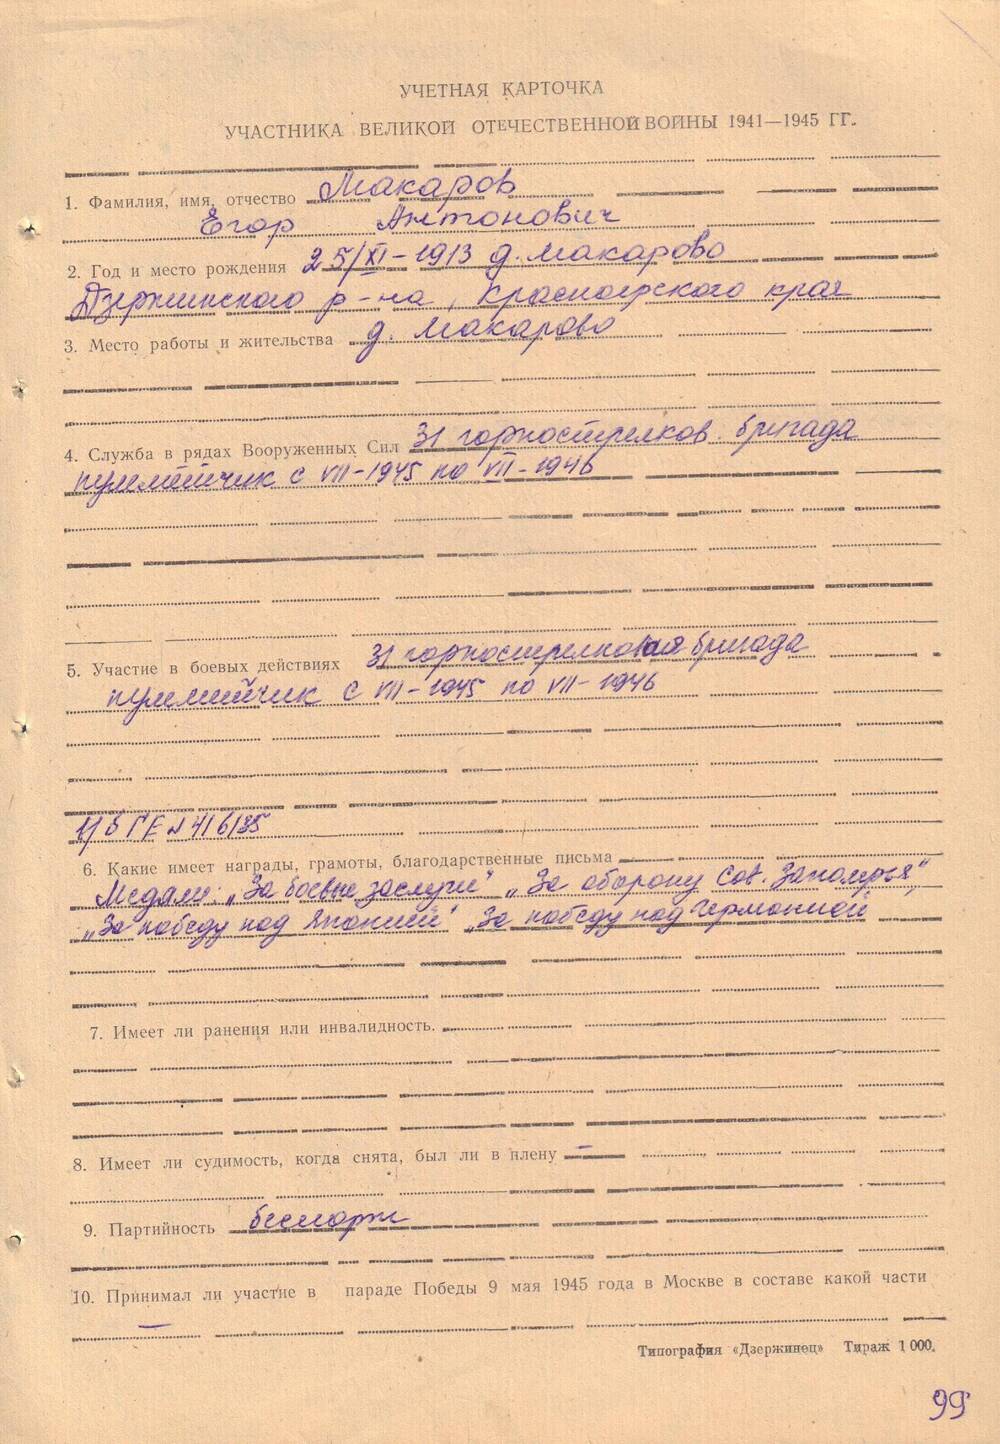 УЧЕТНАЯ КАРТОЧКА
УЧАСТНИКА ВЕЛИКОЙ ОТЕЧЕСТВЕННОЙ ВОЙНЫ 1941—1945 ГГ.
1. Фамилия, имя, отчество Макаров
Егор Антонович
2. Год и место рождения 25/XI-1913 д. Макарово
Дзержинского р-на, Красноярского края
3. Место работы и жительства д. Макарово
4. Служба в рядах Вооруженных Сил 31 горнострелков. бригада
пулемётчик с VII-1945 по VII-1946
5. Участие в боевых действиях 31 горнострелковая бригада
пулемётчик с VII-1945 по VII-1946
У/б ГЕ № 416185
6. Какие имеет награды, грамоты, благодарственные письма
Медали: „За боевые заслуги" „За оборону Сов. Заполярья",
„За победу над Японией" „За победу над Германией
7. Имеет ли ранения или инвалидность.
8. Имеет ли судимость, когда снята, был ли в плену —
9. Партийность беспарт
10. Принимал ли участие в параде Победы 9 мая 1945 года в Москве в составе какой части
—
Типография «Дзержинец» Тираж 1 000.
99